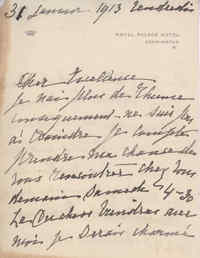 31 Janvier 1913 Vendredi
ROYAL PALACE HOTEL
KENSINGTON
W.
Cher Excellence
Je n'ai plus de rhume
conséquemment ne suis pas
à craindre je compte
prendre ma chance de
vous rencontrer chez vous
demain Samedi 4-30
Le viendrez avec
moi je serais charmé